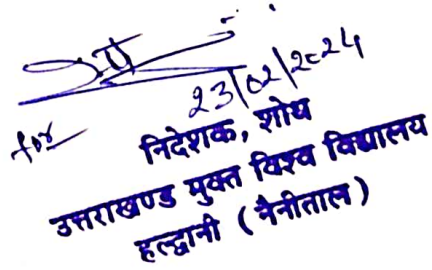 23/02/2024
for
निदेशक, शोध
उत्तराखण्ड मुक्त विश्व विद्यालय
हल्द्वानी (नैनीताल)